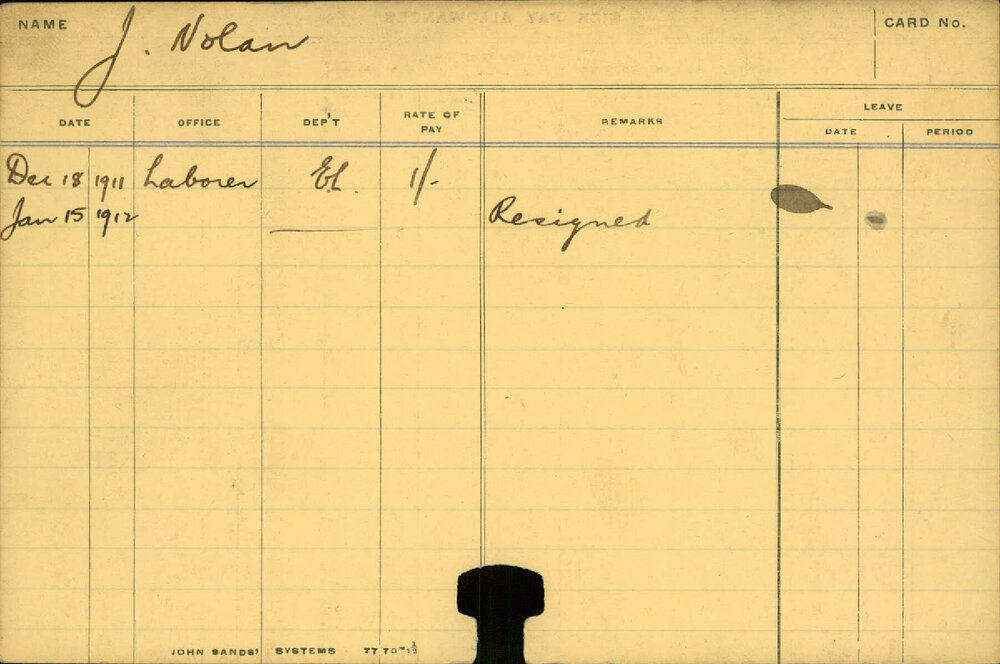 NAME J. Nolan CARD No.
DATE OFFICE DEP'T RATE OF PAY REMARKS LEAVE
DATE PERIOD
Dec 18 1911 Laborer EL. 1/-
Jan 15 1912 Resigned
JOHN SANDS' SYSTEMS